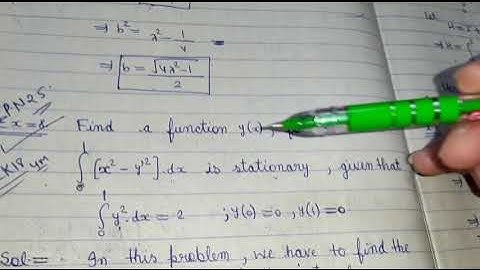 ⇒ b² = λ² - 1/4
⇒ b = √4λ²-1 / 2
Find a function y(x),
∫₀¹ [x² - y'²] dx is stationary, given that
∫₀¹ y² dx = 2 ; y(0) = 0, y(1) = 0
Sol = In this problem, we have to find the
Let